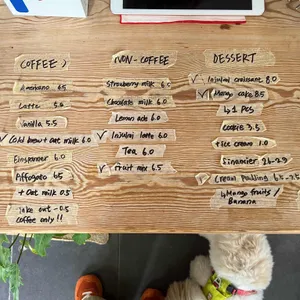 COFFEE
Americano 6.5
Latte 5.0
Vanilla 5.5
✓ Cold brew + oat milk 6.0
Einspanner 6.0
Affogato 6.5
+ Oat milk 0.5
Take out -0.5
coffee only!!
NON-COFFEE
Strawberry milk 6.0
Chocolate milk 6.0
Lemon ade 6.0
✓ Injeolmi latte 6.0
Tea 6.0
✓ Fruit mix 6.5
DESSERT
✓ Injeolmi croissant 8.0
✓ Mango cake 8.5
↳ 1 pcs
Cookie 3.5
+ Ice cream 1.0
Financier 2.6-2.9
Cream pudding 6.5-7.5
↳ Mango fruits /
Banana